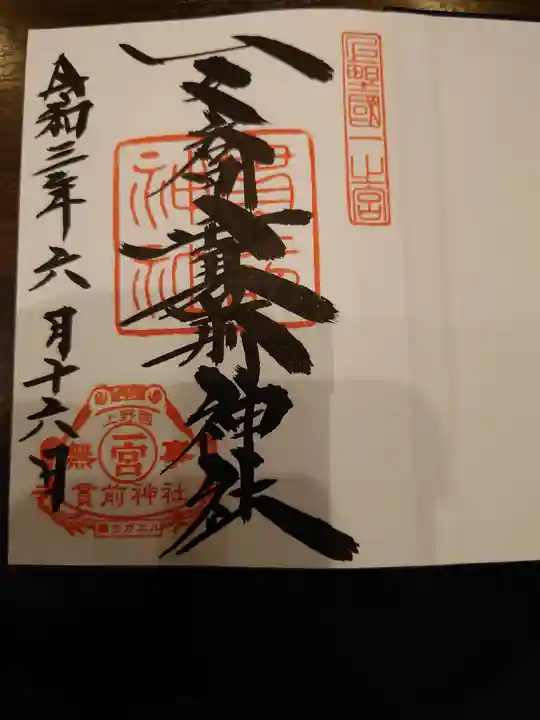 上野國一之宮
一之宮貫前神社
貫前
神社
令和三年六月十六日
上野国
一宮
無事
貫前神社